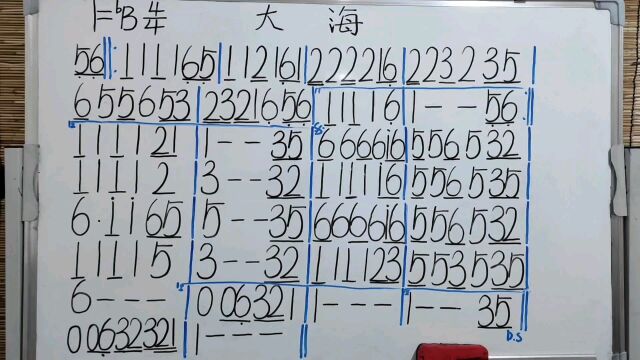 1=♭B 4/4 大海
56 ‖: 1 1 1 1 65 | 1 1 2 1 61 | 2 2 2 2 16 | 2 2 3 2 35 |
6 5 5 6 5 3 | 2 3 2 1 6 56 | 1 1 1 1 6 | 1 - - 56 :‖
1 1 1 1 21 | 1 - - 35 | 6 6 6 6 i6 | 5 5 6 5 32 |
1 1 1 1 2 | 3 - - 32 | 1 1 1 1 16 | 5 5 6 5 35 |
6 · i i 65 | 5 - - 35 | 6 6 6 6 i6 | 5 5 6 5 32 |
1 1 1 1 5 | 3 - - 32 | 1 1 1 23 | 5 5 3 5 35 |
6 - - - | 0 06 32 1 | 1 - - - ‖ 1 - - 35 ‖
0 06 32 321 | 1 - - - ‖ D.S